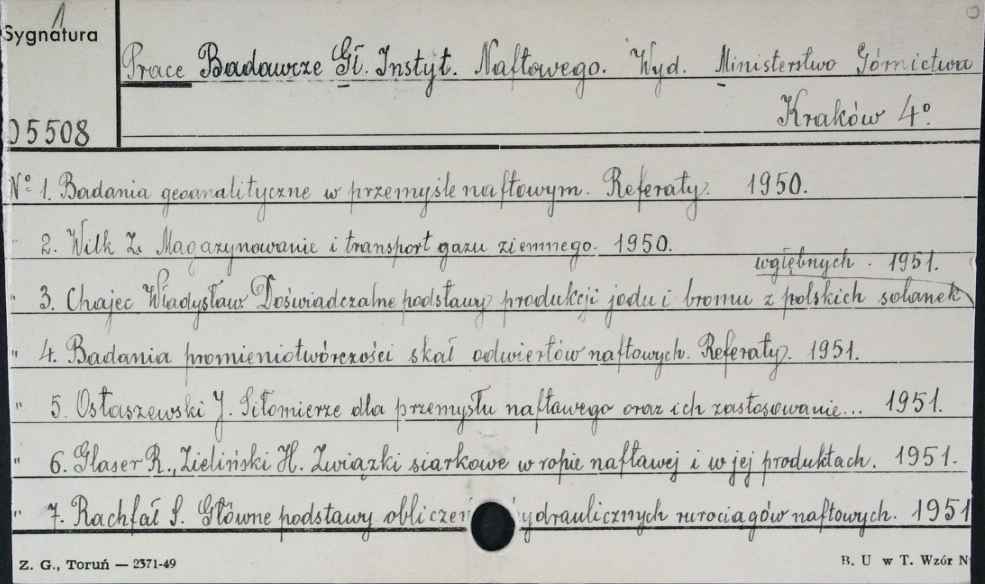 1
Sygnatura
05508
Prace Badawcze Gł. Instyt. Naftowego. Wyd. Ministerstwo Górnictwa
Kraków 4°.
N° 1. Badania geoanalityczne w przemyśle naftowym. Referaty. 1950.
" 2. Wilk Z. Magazynowanie i transport gazu ziemnego. 1950.
wgłębnych. 1951.
" 3. Chajec Władysław Doświadczalne podstawy produkcji jodu i bromu z polskich solanek
" 4. Badania promieniotwórczości skał odwiertów naftowych. Referaty. 1951.
" 5. Ostaszewski J. Siłomierze dla przemysłu naftowego oraz ich zastosowanie... 1951.
" 6. Glaser R., Zieliński H. Związki siarkowe w ropie naftowej i w jej produktach. 1951.
" 7. Rachfał S. Główne podstawy obliczeń hydraulicznych rurociągów naftowych. 1951
Z. G., Toruń — 2371-49
B. U w T. Wzór N